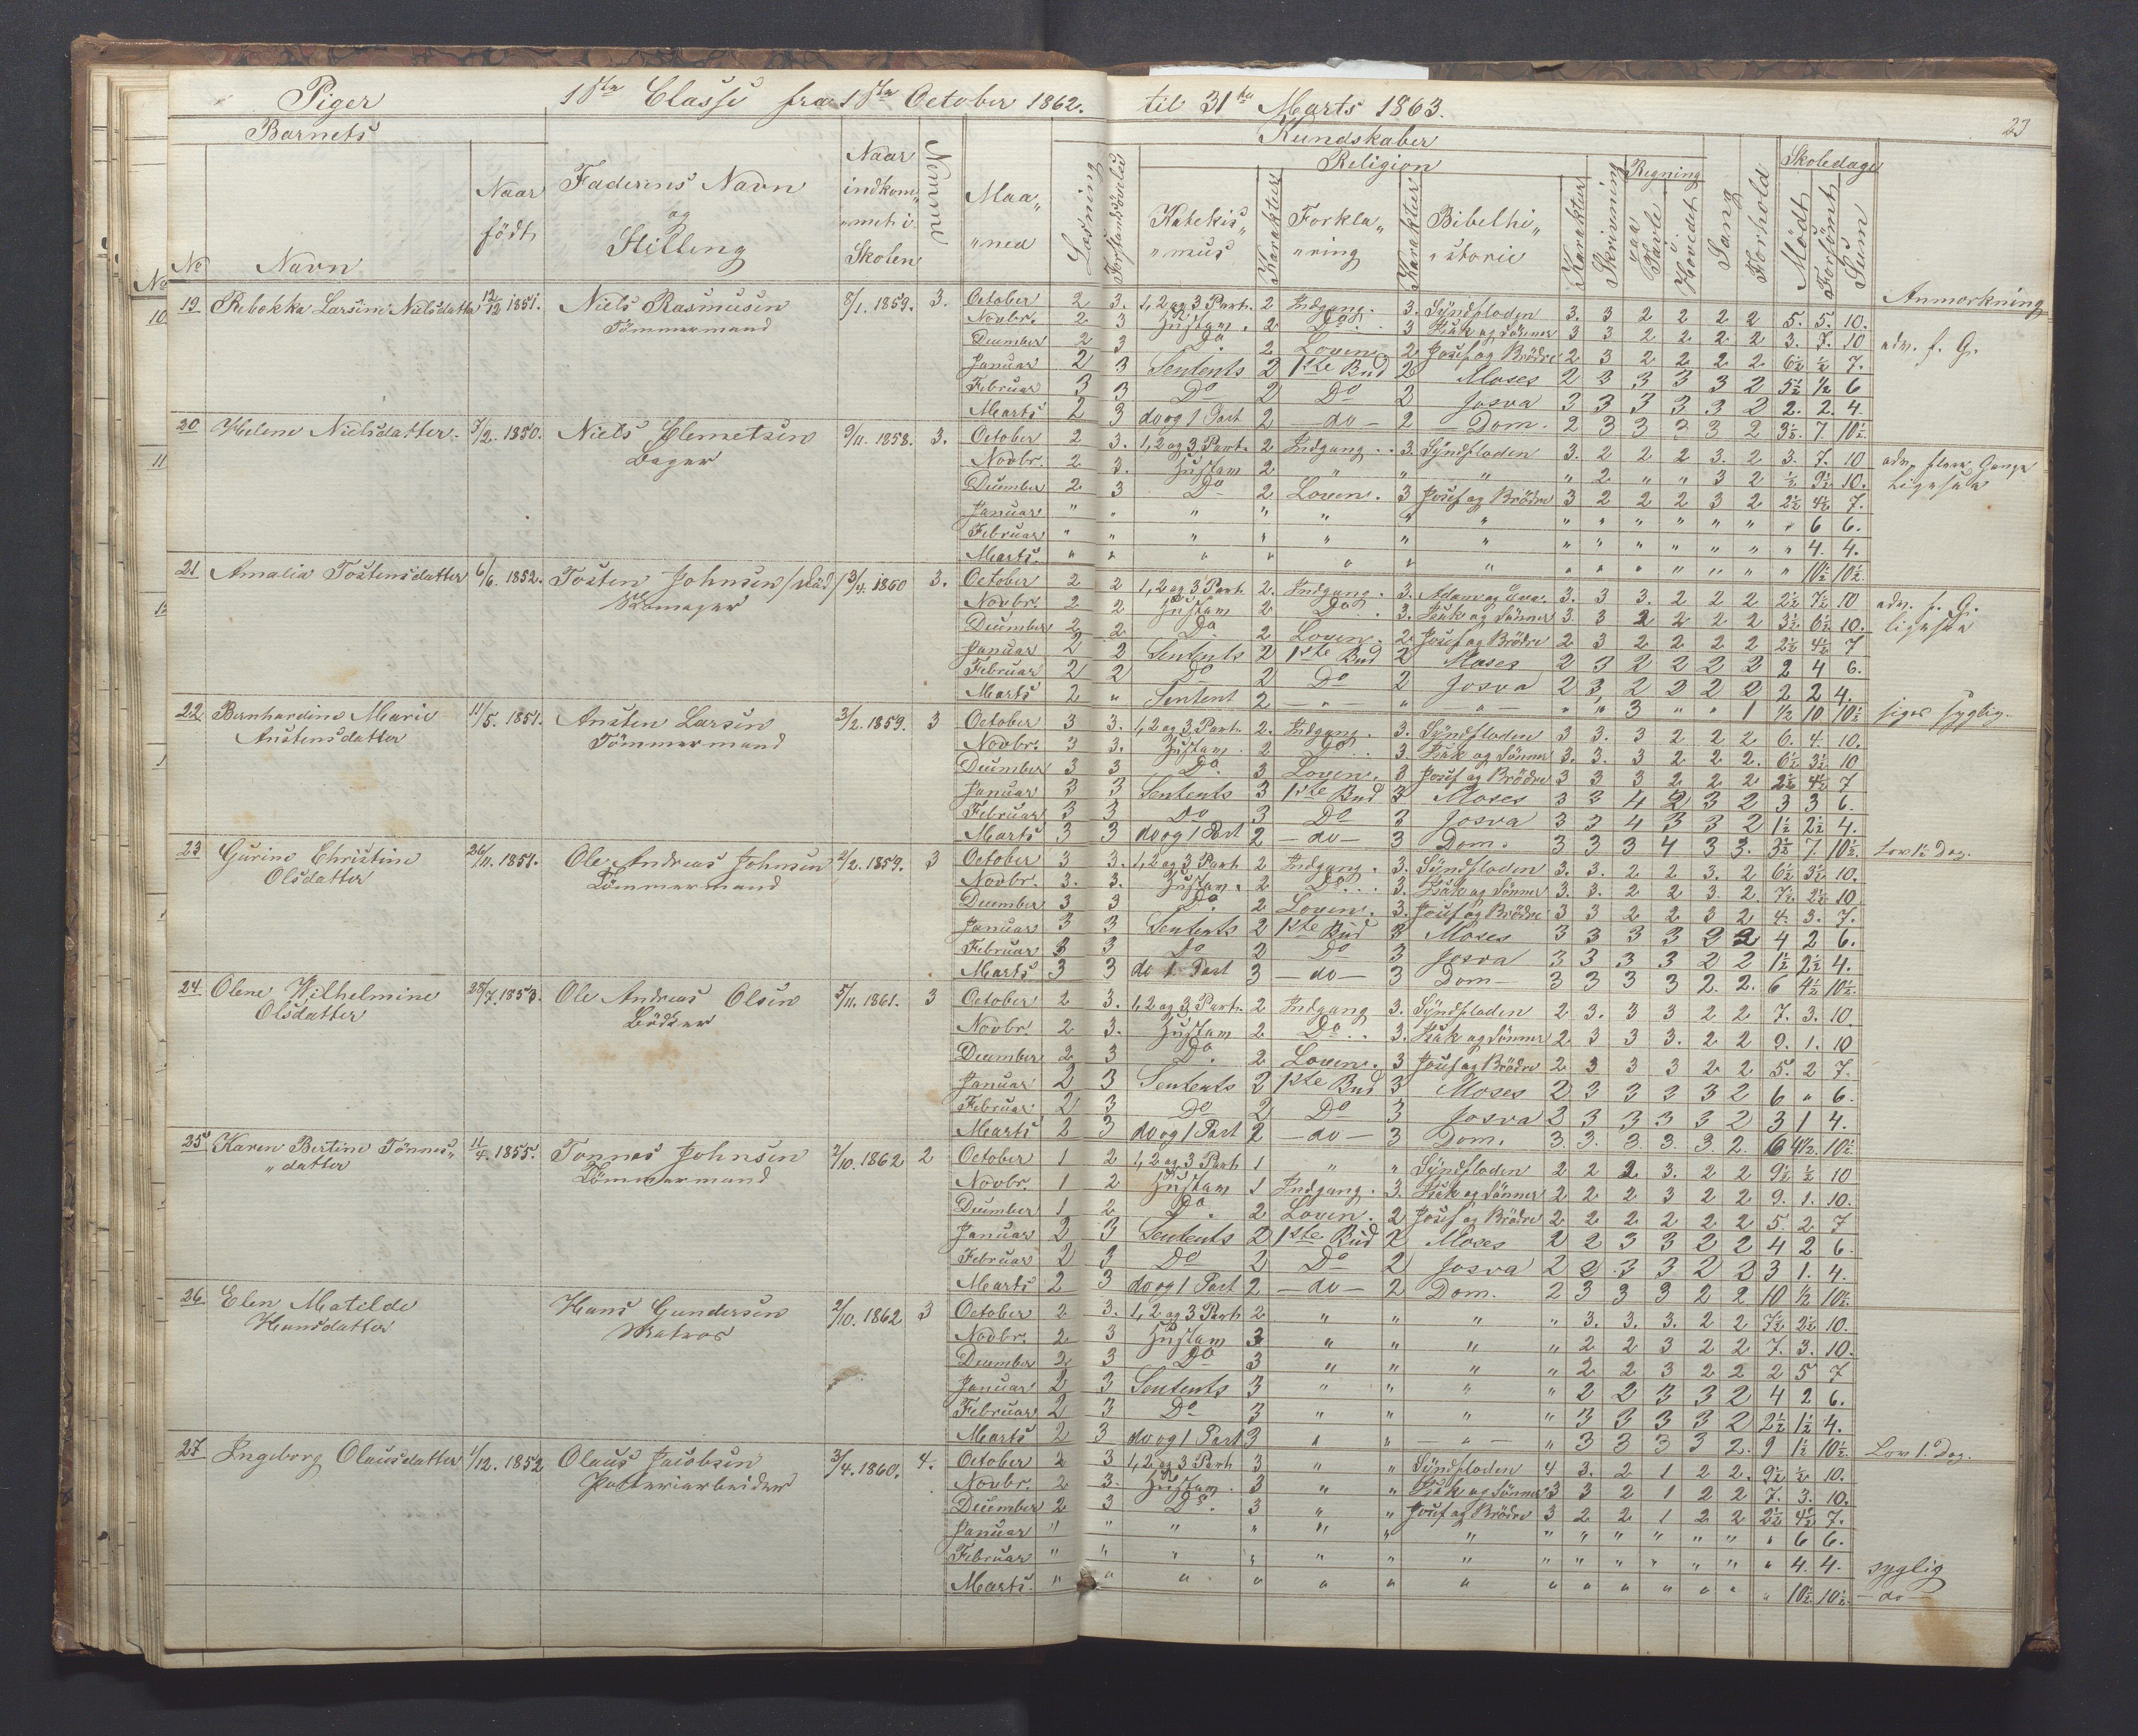 Piger 1ste Classe fra 1ste October 1862. til 31te Marts 1863.
23
Barnets Kundskaber
No Navn Naar födt Faderens Navn og Stilling Naar indkom„ „met i Skolen Nummer Maa„ „ned Læsning Forstandsövelse Religion Katekis„ „mus Karakter Forkla„ „ring Karakter Bibelhi„ „storie Karakter Skrivning Regning paa Tavle i Hovedet Sang Forhold Skoledage Mödt Forsömt Sum Anmærkning
19 Rebekka Larsine Nielsdatter 12/12 1851. Niels Rasmusen 8/1. 1859. 3. October 2 3. 1, 2 og 3 Part. 2 Indgang. 3. Syndfloden 3. 3 2 2 2 2 5. 5. 10.
Tömmermand Novbr. 2 3 2 Do 3 Isak og Sönner 3 3 2 2 2 2 3. 7. 10 adv. f. G.
December 2 3 Do 2 Loven. 2 Josef og Brödre 2 3 2 2 2 2 6½ ½ 7.
Januar 2 3 Sentents 2 1ste Bud 2 Moses 2 3 3 3 3 2 5½ ½ 6
Februar 3 3 Do 2 Do 2 Josva 3 3 3 3 3 2 2. 2. 4.
Marts 2 3 do og 1 Part 2 – do – 2 Dom. 2 3 3 3 3 2 3½. 7. 10½.
20 Helene Nielsdatter. 5/2. 1850. Niels Klemetsen 9/11. 1858. 3. October 2 3. 1, 2 og 3 Part. 2 Indgang.. 3. Syndfloden 3. 2 2 2 3. 2 3. 7. 10 adv. flere Gange
Bager Novbr. 2 3. 2 „ „ „ „ 2 „ „ 3 2 ½ 9½ 10. ligesaa
December 2 3 Do 2 Loven. 3 Josef og Brödre 3 2 2 2 3 2 2½ 4½ 7.
Januar „ „ „ „ „ „ „ „ „ „ „ „ „ „ 6 6.
Februar „ „ „ „ „ „ „ „ „ „ „ „ „ „ 4. 4.
Marts. „ „ „ „ „ „ „ „ „ „ „ „ „ „ 10½ 10½.
21 Amalia Tostensdatter 6/6. 1852. Tosten Johnsen (död) 3/4. 1860 3. October 2 2 1, 2 og 3 Part. 2. Indgang. 3. Adam og Eva. 3. 3 3. 2 2 2 2½ 7½ 10 adv. f. G.
Skomager Novbr. 2 2 2 Do. 3. Isak og Sönner 3. 3 2 2 2 2 3½ 6½ 10. ligesaa
December 2 2 Do 2 Loven. 2 Josef og Brödre 2 3 2 2 2 2 2½ 4½ 7
Januar 2 2 Sentents 2 1ste Bud 2 Moses 2 3 2 2 2 2 2 4 6.
Februar 2 2 Do 2 Do 2 Josva 2 3 2 2 2 2 2 2 4.
Marts 2 „ Sentent 2 – „ – „ – „ – „ „ 3 „ „ 1 ½ 10 10½ siges syglig.
22 Bernhardine Marie 11/5. 1851. Austen Larsen 3/2. 1859. 3 October 3 3. 1, 2 og 3 Part. 2. Indgang. 3. Syndfloden 3 3. 3 2 2 2 6. 4. 10.
Austensdatter Tömmermand Novbr. 3 3. 2 Do. 3. Isak og Sönner 3. 3. 3 2 2 2. 6½ 3½ 10
December 3 3 Do. 3 Loven. 3 Josef og Brödre 3 3 3 2 2 2 2½ 4½ 7
Januar 3 3 Sentents 3 1ste Bud 3 Moses 3 3 4 2 3 2 3 3 6.
Februar 3 3 Do 3 Do 3 Josva 3 3 4 3 3 2 1½ 2½ 4.
Marts 3 3 do og 1 Part 2 – do – 3 Dom. 3 3 3 4 3 3. 3½ 7 10½. Lov 1½ Dag.
23 Gurine Christine 26/11. 1851. Ole Andreas Johnsen 2/2. 1859. 3 October 3 3. 1, 2 og 3 Part 2 Indgang. 3. Syndfloden 3. 3. 2 2 3. 2 6½ 3½ 10.
Olsdatter Tömmermand Novbr. 3. 3. 2 Do... 3. Isak og Sönner 3. 3. 2 2 3. 2. 7½ 2½ 10
December 3 3 Do. 2 Loven. 3. Josef og Brödre 3 3 2 2 3 2 4. 3. 7.
Januar 3 3 Sentents 2 1ste Bud 3 Moses 3 3 3 3 2 2 4 2 6.
Februar 3 3 Do 2 Do 3 Josva 3 3 3 3 2 2 1½ 2½ 4.
Marts 3 3 do 1 Part 3 – do – 3 Dom – 3 3 3 3 2. 2. 6 4½ 10½.
24 Olene Wilhelmine 28/7. 1853. Ole Andreas Olsen 5/11. 1861. 3 October 2 3. 1, 2 og 3 Part. 2 Indgang 3. Syndfloden 2 3. 3 3 2 2 7. 3. 10.
Olsdatter Bödker Novbr 2 3. 2 Do.. 3. Isak og Sönner 2 3 3 3. 2 2 9. 1. 10
December 2 3 Do. 2 Loven. 3 Josef og Brödre 2 3 3 3 2 2 5. 2 7.
Januar 2 3 Sentents 2 1ste Bud 3 Moses 2 3 3 3 3 2 6 „ 6.
Februar 2 3 Do 2 Do 3 Josva 2 3 3 3 3 2 3 1 4.
Marts 2 3 do og 1 Part 2 – do – 3 Dom. 3. 3. 3. 3. 3. 2. 6 4½. 10½.
25 Karen Bertine Tönnes„ 11/4. 1855. Tonnes Johnsen 2/10. 1862 2 October 1 2 1, 2 og 3 Part 1 „ „ Syndfloden 2 2 2 3. 2 2 9½ ½ 10
„datter Tömmermand Novbr. 1 2 1 Indgang. 3. Isak og Sönner 2 2 2 3 2 2 9. 1. 10.
December 1 2 Do. 2 Loven. 2 Josef og Brödre 2 2 2 2 2 2 5. 2 7
Januar 2 3 Sentents 2 1ste Bud 2 Moses 2 2 3 3 2 2 4 2 6.
Februar 2 3 Do 2 Do 2 Josva 2 2 3 3 2 2 3 1. 4.
Marts 2 3 do og 1 Part 2 – do – 2 Dom. 2 3 3 3 2 2 10 ½ 10½.
26 Elen Matilde Hans Gundersen 2/10. 1862 3 October 2 3. 1, 2 og 3 Part 2 „ „ „ „ 3. 3. 3. 2 2 7½ 2½ 10.
Hansdatter Matros Novbr. 2 3 3 „ „ „ „ 2 2 3 2 2 7. 3. 10.
December 2 3 Do 3 „ „ „ „ 2 2 3 2 2 2 5 7
Januar 2 3 Sentents 3 „ „ „ „ 2 2 3 3 2 4 2 6.
Februar 2 3 Do 3 „ „ „ „ 3 3 3 3 2 2½ 1½ 4.
Marts 2 3 do og 1 Part 3 „ „ „ – „ 3 3 3 3 2. 9 1½ 10½ Lov 1. Dag.
27 Ingeborg Olausdatter 1/12. 1852 Olaus Jacobsen 3/4. 1860. 4. October 2 3 1, 2 og 3 Part 3 „ „ Syndfloden 4 3. 2 1 2 2. 9½ ½ 10.
Potteriarbeider Novbr. 2 3. 3 „ „ Isak og Sönner 3 3 2 1 2 2 7. 3. 10.
December 2 3 Do. 3 „ „ Josef og Brödre 3 2 2 1 2 2 2½ 4½ 7.
Januar „ „ „ „ „ „ „ „ „ „ „ „ „ „ 6 6.
Februar „ „ „ „ „ „ „ „ „ „ „ „ „ „ 4. 4. syglig
Marts. „ „ „ „ „ „ „ „ „ „ „ „ „ „ 10½ 10½. – do –
No
10
11